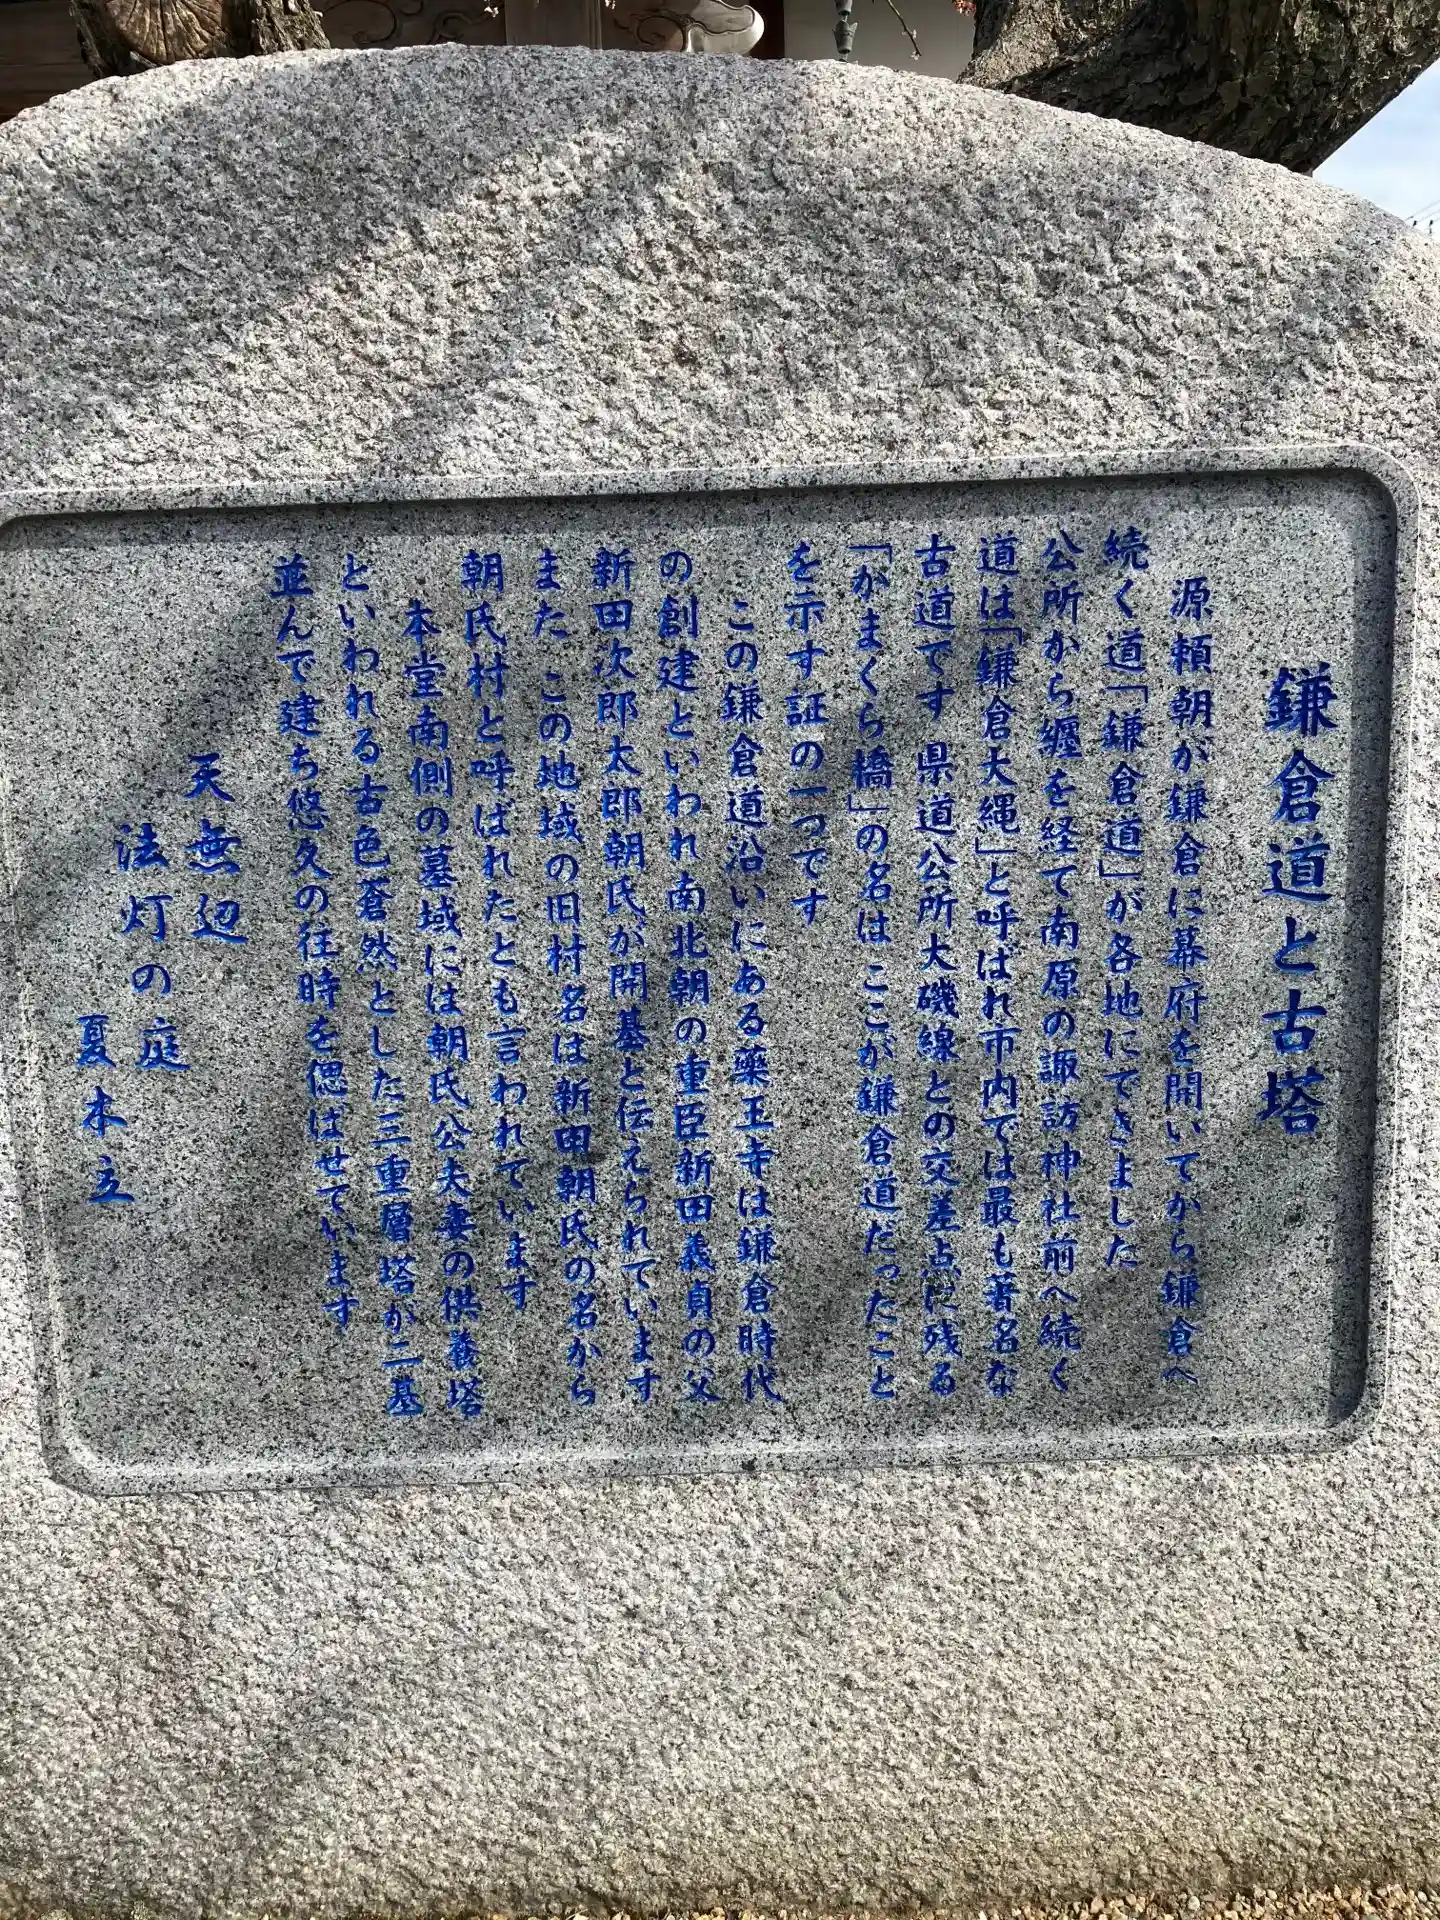 鎌倉道と古塔
源頼朝が鎌倉に幕府を開いてから鎌倉へ
続く道「鎌倉道」が各地にできました
公所から纒を経て南原の諏訪神社前へ続く
道は「鎌倉大縄」と呼ばれ市内では最も著名な
古道です 県道公所大磯線との交差点に残る
「かまくら橋」の名は ここが鎌倉道だったこと
を示す証の一つです
この鎌倉道沿いにある薬王寺は鎌倉時代
の創建といわれ南北朝の重臣新田義貞の父
新田次郎太郎朝氏が開基と伝えられています
また この地域の旧村名は新田朝氏の名から
朝氏村と呼ばれたとも言われています
本堂南側の墓域には朝氏公夫妻の供養塔
といわれる古色蒼然とした三重層塔が二基
並んで建ち悠久の往時を偲ばせています
天無辺
法灯の庭
夏木立